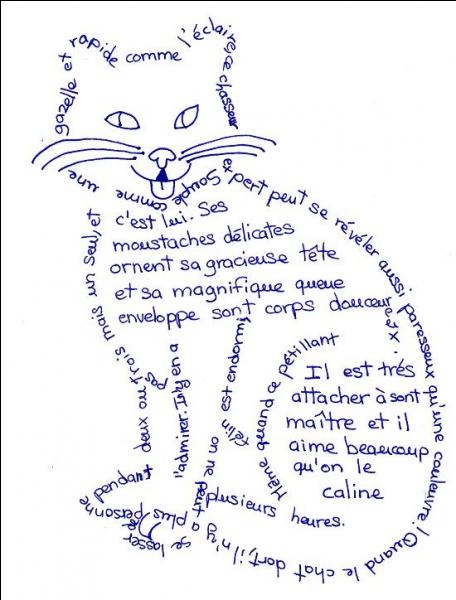 Souple comme une
gazelle et rapide comme l'éclaire, ce chasseur
expert peut se révéler aussi paresseux qu'une couleuvre!
Quand le chat dort, il n'y a plus personne pendant
plusieurs heures.
Même quand ce pétillant
félin est endormi
on ne peut
se lasser de
l'admirer. Il n'y en a
pas
deux ou trois mais un seul, et
c'est lui. Ses
moustaches délicates
ornent sa gracieuse tête
et sa magnifique queue
enveloppe sont corps douceureux.
Il est trés
attacher à sont
maître et il
aime beaucoup
qu'on le
caline